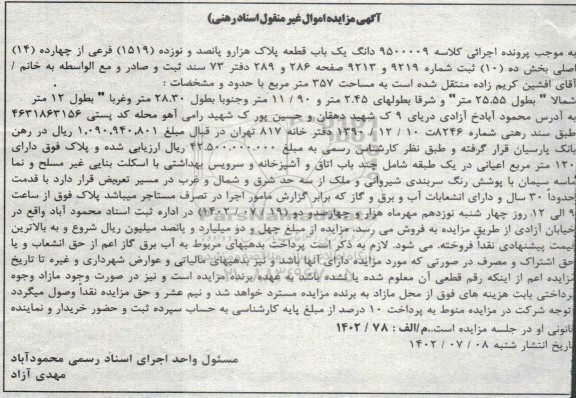 آگهی مزایده اموال غیر منقول اسناد رهنی)
به موجب پرونده اجرائی کلاسه ۹۵۰۰۰۰۹ دانگ یک باب قطعه پلاک هزارو پانصد و نوزده (۱۵۱۹) فرعی از چهارده (۱۴)
اصلی بخش ده (۱۰) ثبت شماره ۹۲۱۹ و ۹۲۱۳ صفحه ۲۸۶ و ۲۸۹ دفتر ۷۳ سند ثبت و صادر و مع الواسطه به خانم /
آقای افشین کریم زاده منتقل شده است به مساحت ۳۵۷ متر مربع با حدود و مشخصات :
شمالا " بطول ۲۵.۵۵ متر" و شرقا بطولهای ۲.۴۵ متر و ۹۰ / ۱۱ متر وجنوبا بطول ۲۸.۳۰ متر وغربا " بطول ۱۲ متر
به آدرس محمود آبادخ آزادی دریای ۹ ک شهید دهقان و حسین پور ک شهید رامی آهو محله کد پستی ۴۶۳۱۸۶۳۱۵۶
طبق سند رهنی شماره ۸۲۴۶ت ۱۰ / ۱۲ / ۱۳۹۱ دفتر خانه ۸۱۷ تهران در قبال مبلغ ۱.۰۹۰.۹۴۰.۸۰۱ ریال در رهن
بانک پارسیان قرار گرفته و طبق نظر کارشناس رسمی به مبلغ ۴۲.۵۰۰.۰۰۰.۰۰۰ ریال ارزیابی شده و پلاک فوق دارای
۱۲۰ متر مربع اعیانی در یک طبقه شامل چند باب اتاق و آشپزخانه و سرویس بهداشتی با اسکلت بنایی غیر مسلح و نما
ماسه سیمان با پوشش رنگ سربندی شیروانی و ملک از سه حد شرق و شمال و غرب در مسیر تعریض قرار دارد با قدمت
حدوداً ۳۰ سال و دارای انشعابات آب و برق و گاز که برابر گزارش مامور اجرا در تصرف مستاجر میباشد پلاک فوق از ساعت
۹ الی ۱۲، روز چهار شنبه نوزدهم مهرماه هزار و چهارصد و دو (۱۹ / ۰۷ / ۱۴۰۲) در اداره ثبت اسناد محمود آباد واقع در
خیابان آزادی از طریق مزایده به فروش می رسد. مزایده از مبلغ چهل و دو میلیارد و پانصد میلیون ریال شروع و به بالاترین
قیمت پیشنهادی نقداً فروخته. می شود. لازم به ذکر است پرداخت بدهیهای مربوط به آب برق گاز اعم از حق انشعاب و یا
حق اشتراک و مصرف در صورتی که مورد مزایده دارای آنها باشد و نیز بدهیهای مالیاتی و عوارض شهرداری و غیره تا تاریخ
مزایده اعم از اینکه رقم قطعی آن معلوم شده یا نشده باشد به عهده برنده مزایده است و نیز در صورت وجود مازاد وجوه
پرداختی بابت هزینه های فوق از محل مازاد به برنده مزایده مسترد خواهد شد و نیم عشر و حق مزایده نقداً وصول میگردد
توجه شرکت در مزایده منوط به پرداخت ۱۰ درصد از مبلغ پایه کارشناسی به حساب سپرده ثبت و حضور خریدار و نماینده
قانونی او در جلسه مزایده است..م/الف : ۷۸ / ۱۴۰۲
تاریخ انتشار شنبه ۰۸ / ۰۷ / ۱۴۰۲
مسئول واحد اجرای اسناد رسمی محمودآباد
مهدی آزاد